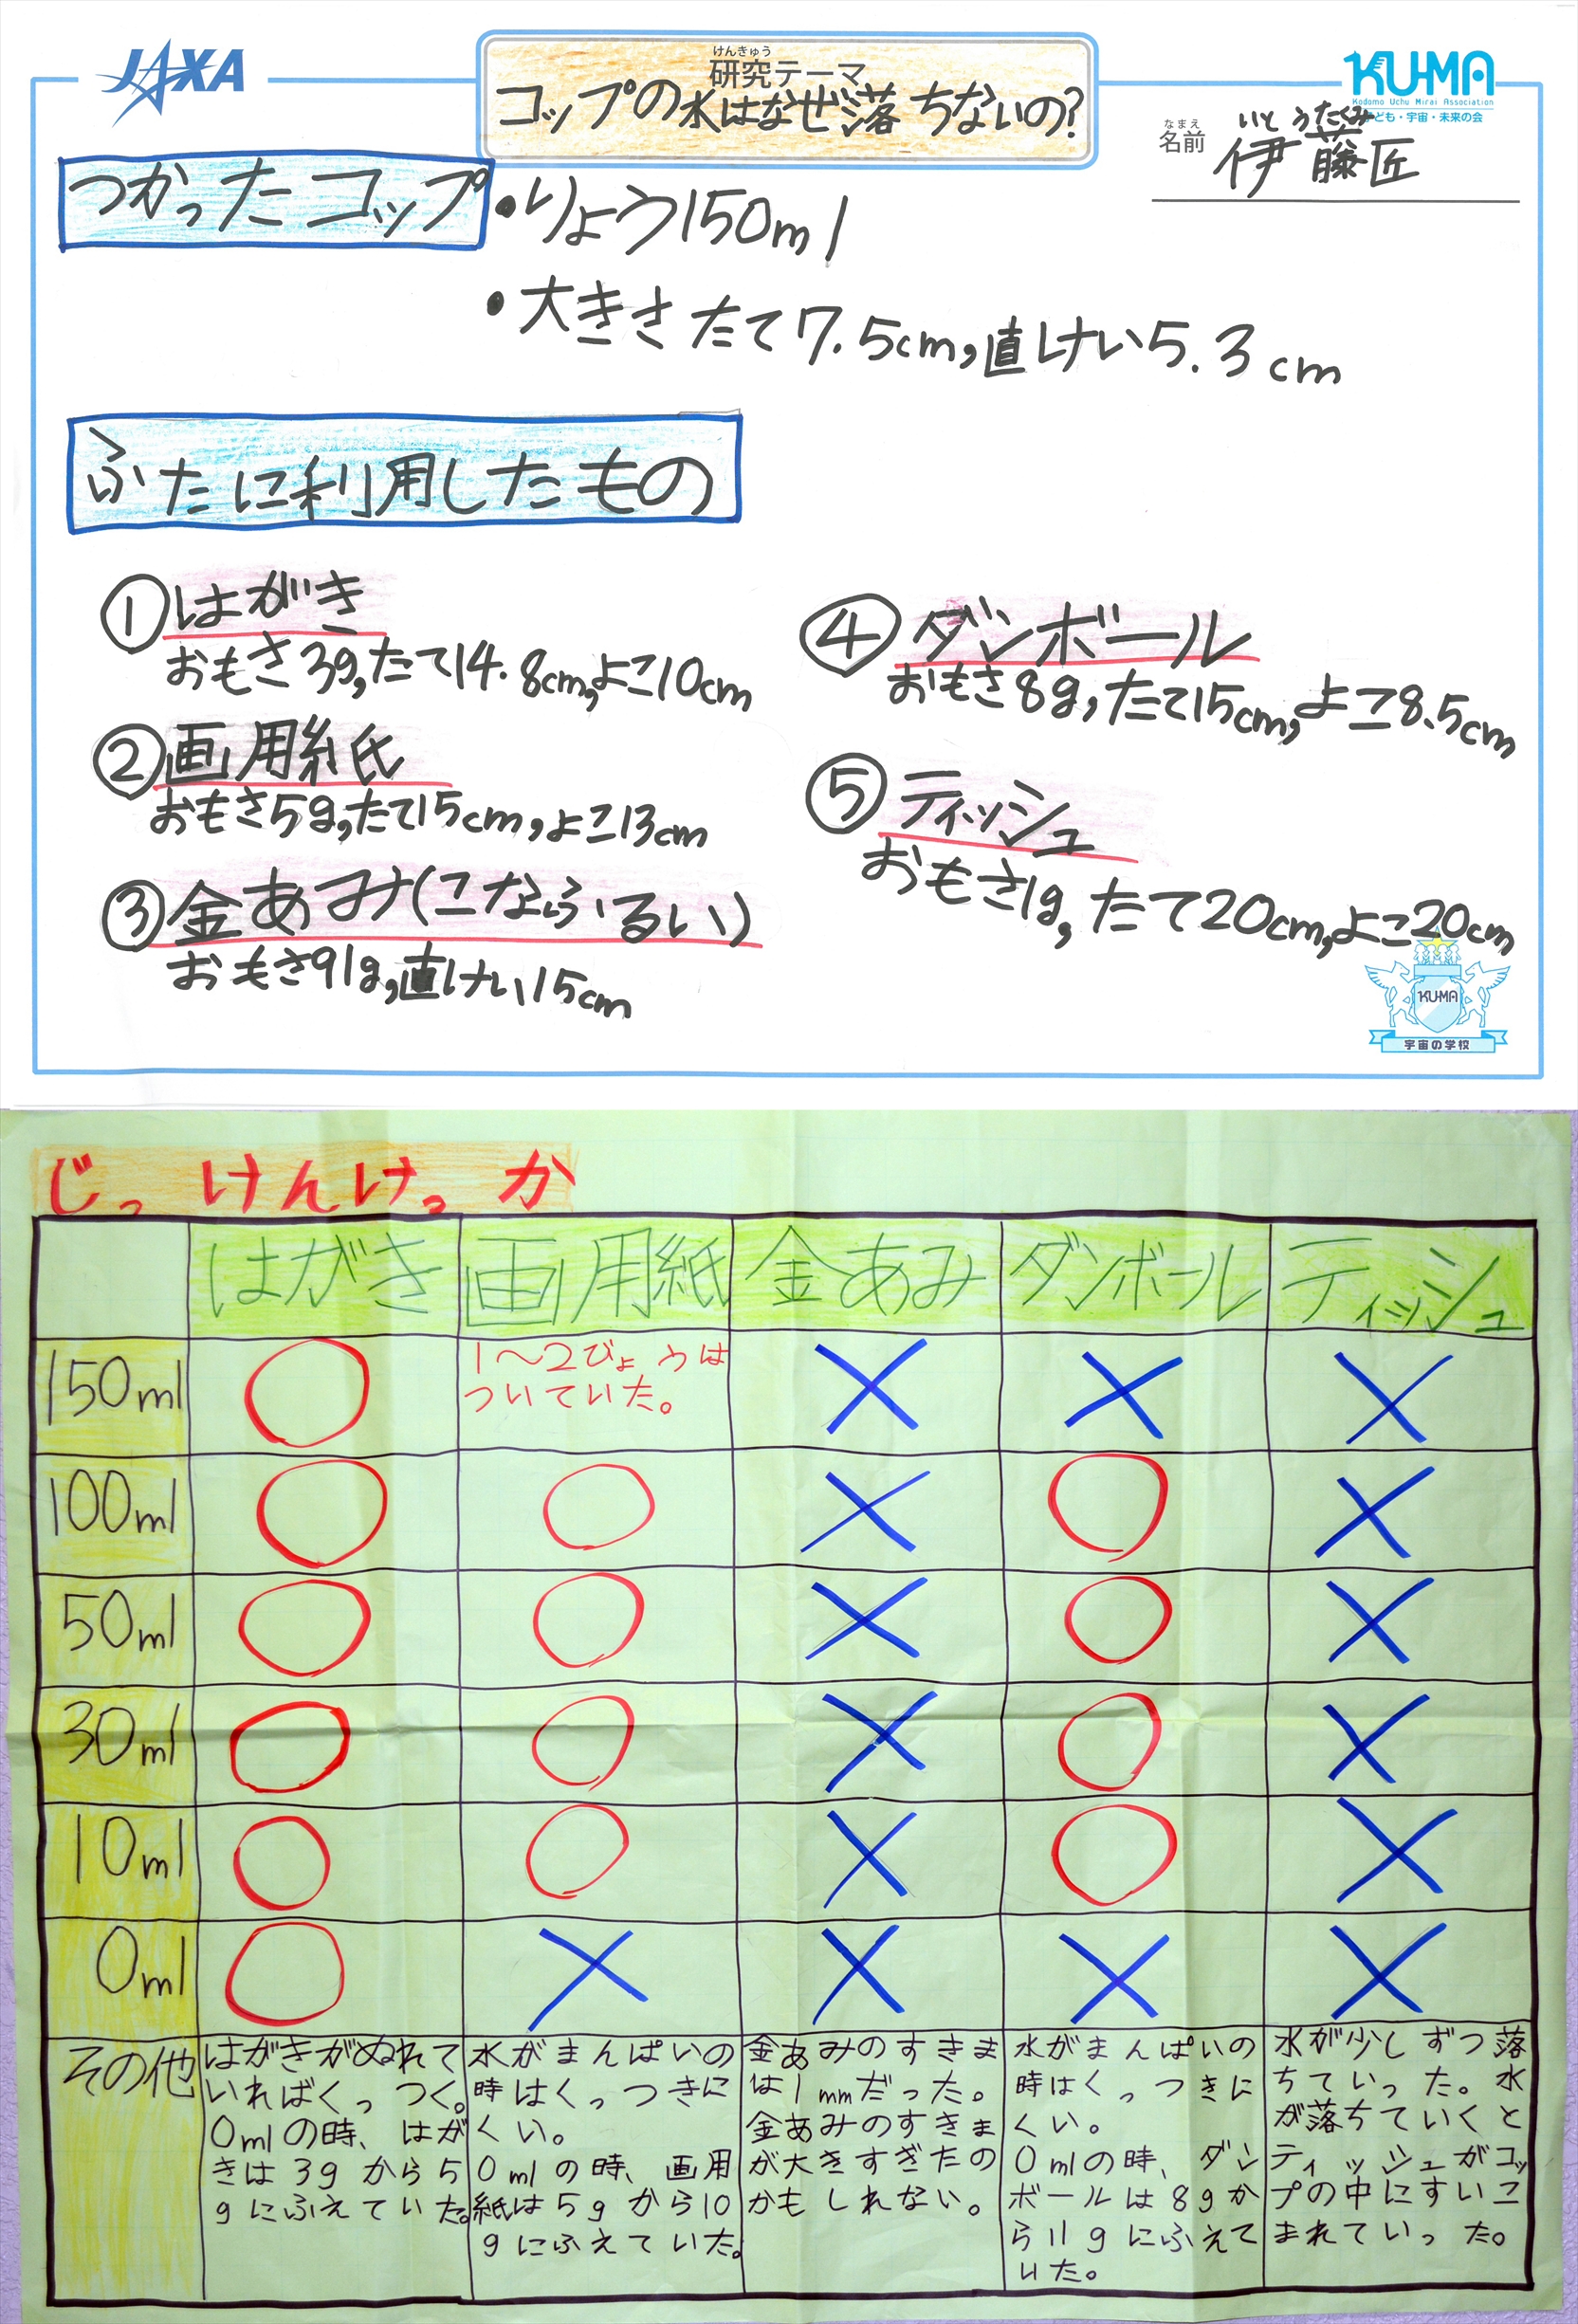 JAXA
けんきゅう
研究テーマ
コップの水はなぜ落ちないの?
KU-MA
Kodomo Uchu Mirai Association
ども・宇宙・未来の会
なまえ
名前
いとうたくみ
伊藤匠
つかったコップ
・りょう150ml
・大きさたて7.5cm,直けい5.3cm
ふたに利用したもの
①はがき
おもさ3g,たて14.8cm,よこ10cm
②画用紙
おもさ5g,たて15cm,よこ13cm
③金あみ(こなふるい)
おもさ91g,直けい15cm
④ダンボール
おもさ8g,たて15cm,よこ8.5cm
⑤ティッシュ
おもさ1g,たて20cm,よこ20cm
KU-MA
宇宙の学校
じっけんけっか
はがき 画用紙 金あみ ダンボール ティッシュ
150ml ○ 1〜2びょうは × × ×
ついていた。
100ml ○ ○ × ○ ×
50ml ○ ○ × ○ ×
30ml ○ ○ × ○ ×
10ml ○ ○ × ○ ×
0ml ○ × × × ×
その他
はがきがぬれて
いればくっつく。
0mlの時、はが
きは3gから5
gにふえていた。
水がまんぱいの
時はくっつきに
くい。
0mlの時、画用
紙は5gから10
gにふえていた。
金あみのすきま
は1mmだった。
金あみのすきま
が大きすぎたの
かもしれない。
水がまんぱいの
時はくっつきに
くい。
0mlの時、ダン
ボールは8gか
ら11gにふえて
いた。
水が少しずつ落
ちていった。水
が落ちていくと
ティッシュがコッ
プの中にすいこ
まれていった。